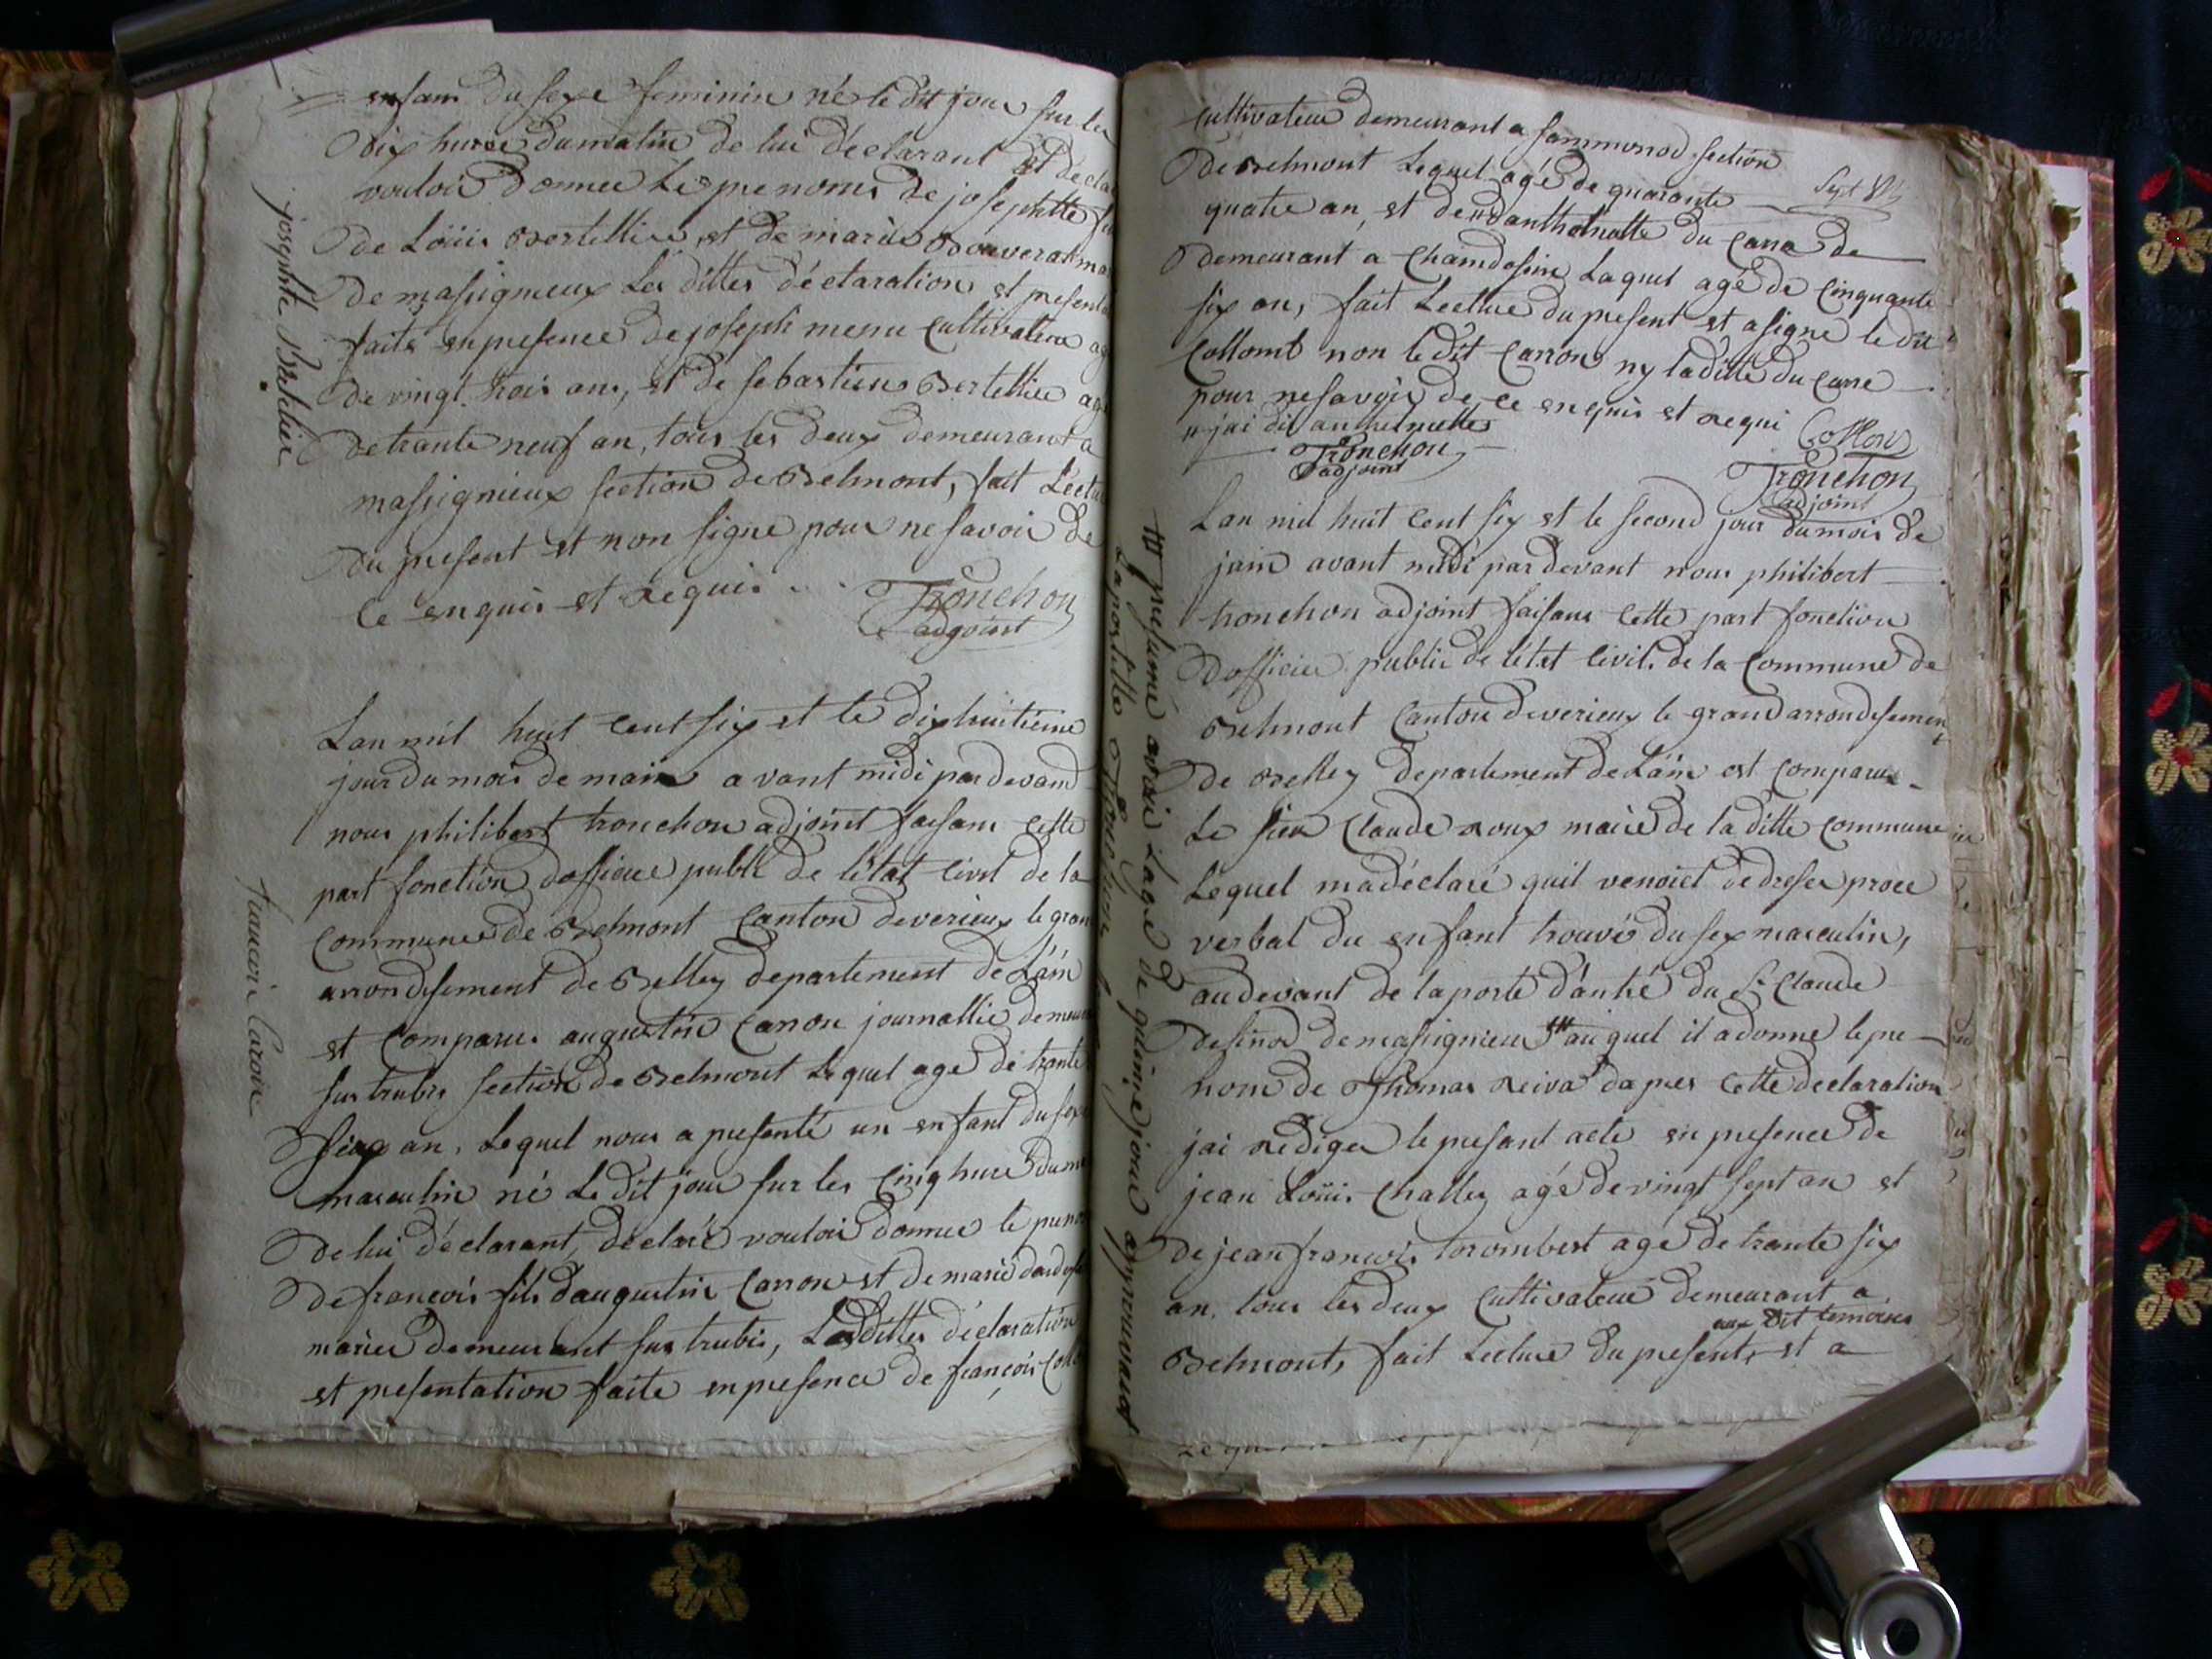 enfant du sexe feminin né le dit jour sur les
dix heures du matin de lui déclarant et décla
vouloir donner les prenoms de josephtte
de Loüis Bertellier et de marie Bouverat
de massigneux les dittes déclaration et presenta
faits en presence de joseph menu cultivateur ag
de vingt trois ans, et de sebastien Bertellier ag
de trante neuf an, tous les deux demeurant a
massignieux section de Belmont, fait Lectu
du present et non signe pour ne savoir de
ce enquis et requis
Tronchon
adjoint
josephte Bertelier
Lan mil huit cent six et le dix huitième
jour du mois de mai avant midi par devand
nous philibert tronchon adjoint faisant cette
part fonction dofficier public de létat civil de la
commune de Belmont Canton de verieux le gran
arrondisement de Belley departement de Lain
est comparu augustin Carron journallier demeu
sur trubis section de Belmont Lequel age de trante
an, Lequel nous a presenté un enfant du sex
masculin né Le dit jour sur les cinq hures du ma
de lui déclarant, déclaré vouloir donner le preno
de françois fils daugustin Carron et de marie
mariés demeurant sur trubis, Les dittes déclaration
et presentation faite en presence de françois Coll
francois Caron
cultivateur demeurant a sammonod section
de Belmont Lequel agé de quarante
Sept
quatre an, et de danthelmette du Carre de
demeurant a Chamdossin Laquel agé de cinquante
six an, fait Lecture du present et a signé le dit
Collomb non le dit Carron ny laditte du Carre
pour ne savoir de ce enquis et requi
jai dit anthelmette
Tronchon
adjoint
Tronchon
adjoint
Lan mil huit cent six et le second jour du mois de
juin avant midi par devant nous philibert
tronchon adjoint faisant cette part fonction
dofficier public de létat civil de la commune de
Belmont Canton de verieux le grand arrondisement
de Belley departement de Lain est comparu
Le sieur Claude roux maire de la ditte commune
Lequel ma déclaré quil venoict de dreser proce
verbal du enfant trouvé du sex masculin,
au devant de la porte dantré du Sr Claude
de massignieu auquel il a donné le pre
nom de Thomas neiva dapres cette declaration
jai rediger le presant acte en presence de
jean Loüis Challey agé de vingt sept an et
de jean francois torombert agé de trante six
an, tous les deux cultivateur demeurant a
aux dit temoins
Belmont, fait Lecture du present, et a
presumé avoir Lage de quinze jour approuvant
Lapostille Tronchon